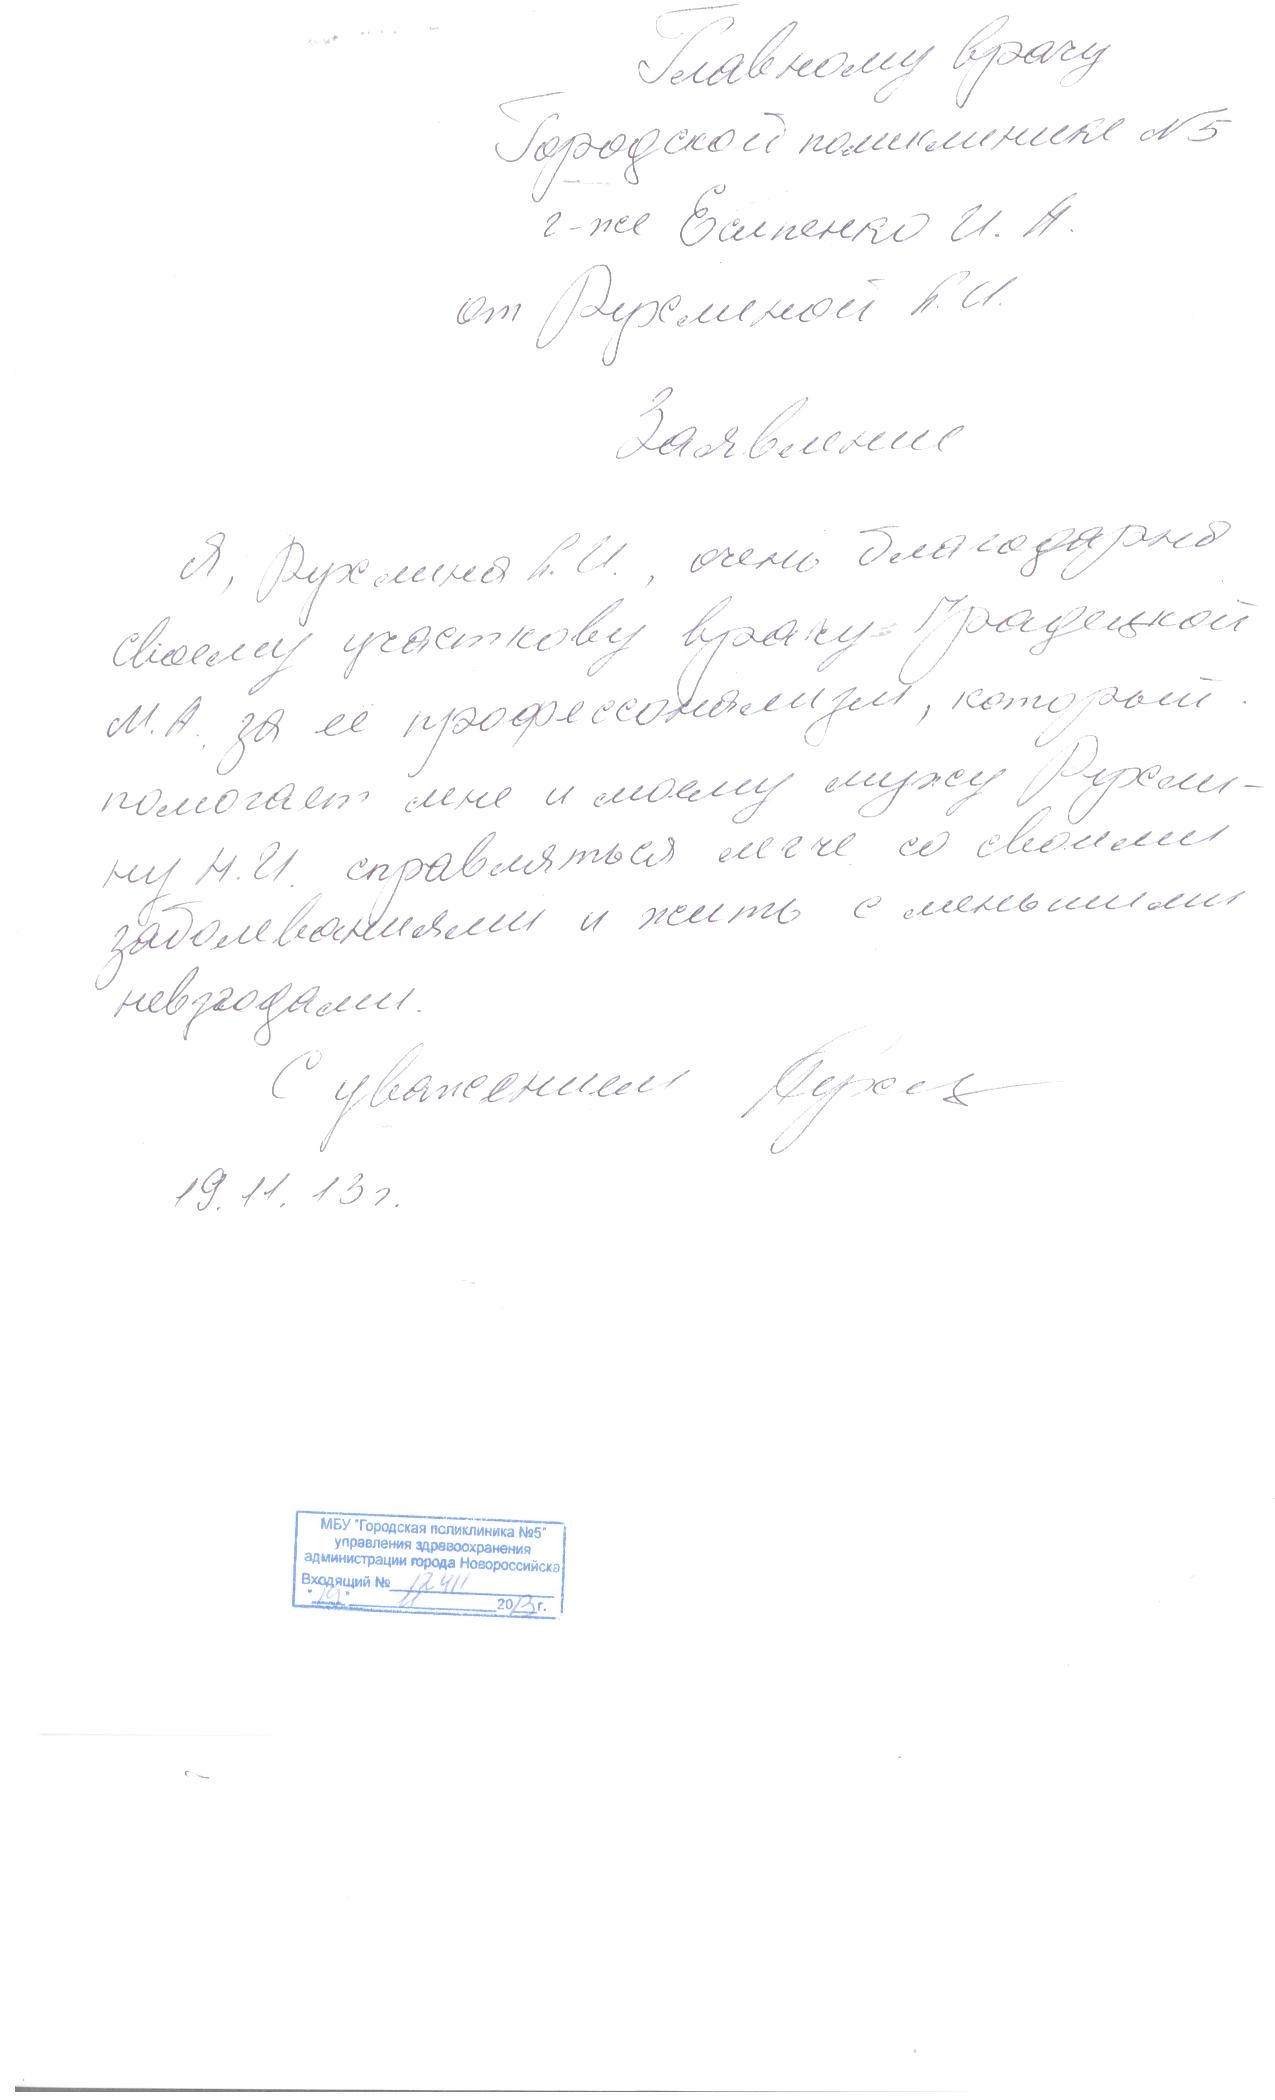 Главному врачу
Городской поликлинике N5
г-же Есипенко И. А.
от Рухлиной Г.И.
Заявление
Я, Рухлина Г.И., очень благодарна
своему участкову врачу Градецкой
М.А. за её профессонализм, который
помогает мне и моему мужу Рухли-
ну Н.И. справляться легче со своими
заболеваниями и жить с меньшими
невзгодами.
С уважением
19.11.13г.
МБУ "Городская поликлиника №5"
управления здравоохранения
администрации города Новороссийска
Входящий №
"19" 11 2013г.